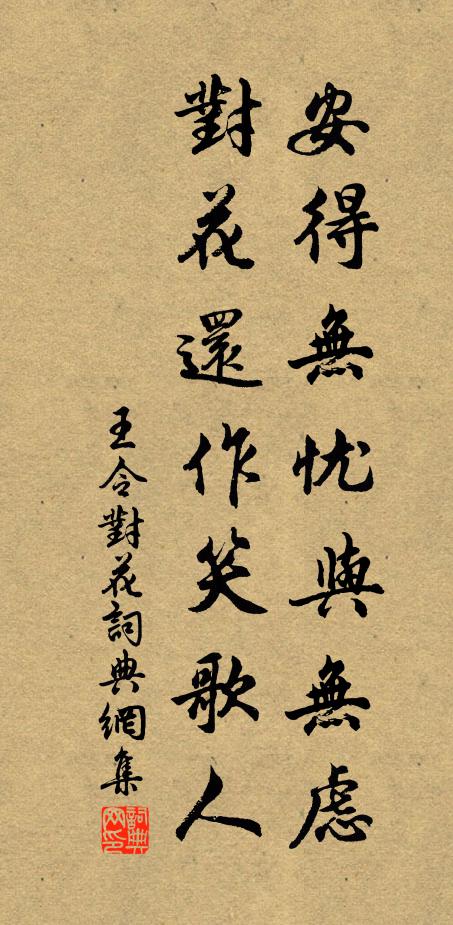 安得無忧與無慮
對花還作笑歌人
王令對花詞典網集
詞典網印